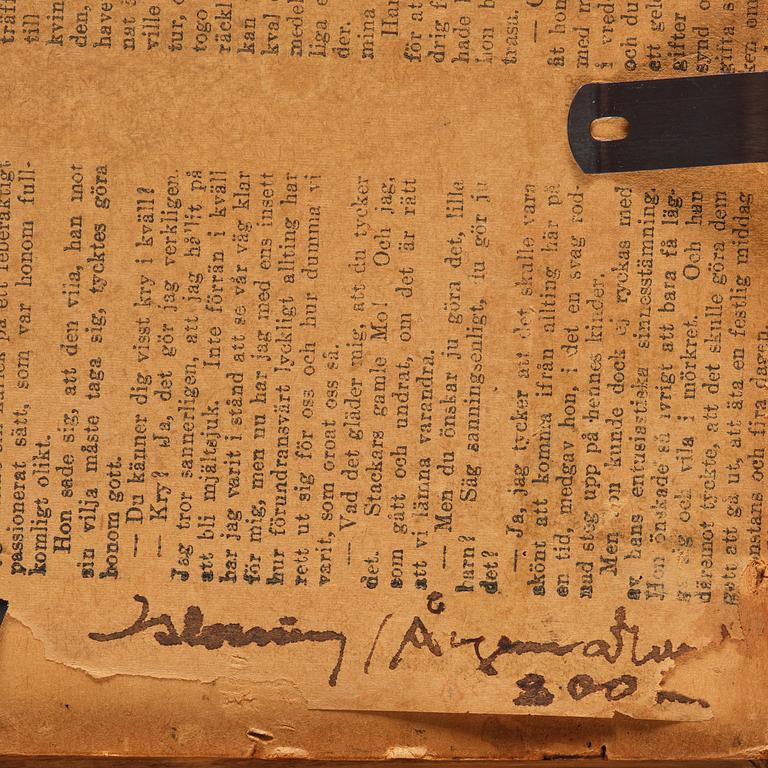 passionerat sätt, som var honom full-
komligt olikt.
Hon sade sig, att den vila, han mot
sin vilja måste taga sig, tycktes göra
honom gott.
— Du känner dig visst kry i kväll?
— Kry? Ja, det gör jag verkligen.
Jag tror sannerligen, att jag hållit på
att bli mjältsjuk. Inte förrän i kväll
har jag varit i stånd att se vår väg klar
för mig, men nu har jag med ens insett
hur förundransvärt lyckligt allting har
rett ut sig för oss och hur dumma vi
varit, som oroat oss så.
— Vad det gläder mig, att du tycker
det. Stackars gamle Mo! Och jag,
som gått och undrat, om det är rätt
att vi lämna varandra.
— Men du önskar ju göra det, lilla
barn? Säg sanningsenligt, du gör ju
det?
— Ja, jag tycker att det skulle vara
skönt att komma ifrån allting här på
en tid, medgav hon, i det en svag rod-
nad steg upp på hennes kinder.
Men hon kunde dock ej ryckas med
av hans entusiastiska sinnesstämning.
Hon önskade så ivrigt att bara få läg-
ga sig och vila i mörkret. Och han
däremot tyckte, att det skulle göra dem
gott att gå ut, att äta en festlig middag
och fira dagen.
träff
till
kvin
den,
have
nat
ville
tur,
togo
räckl
kan
kval
medel
liga
der.
mina
för at
drig f
hade
hon b
trasa.
åt hon
med
i vred
och du
ett gel
gifter
synd
200